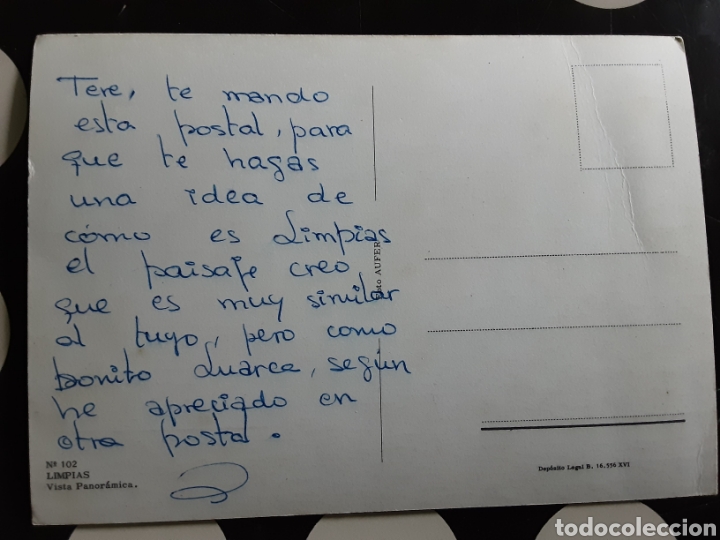 Tere, te mando
esta postal, para
que te hagas
una idea de
cómo es Limpias
el paisaje creo
que es muy similar
al tuyo, pero como
bonito Luarca, según
he apreciado en
otra postal.
Nº 102
LIMPIAS
Vista Panorámica.
Foto AUFER
Depósito Legal B. 16.556 XVI
todocoleccion